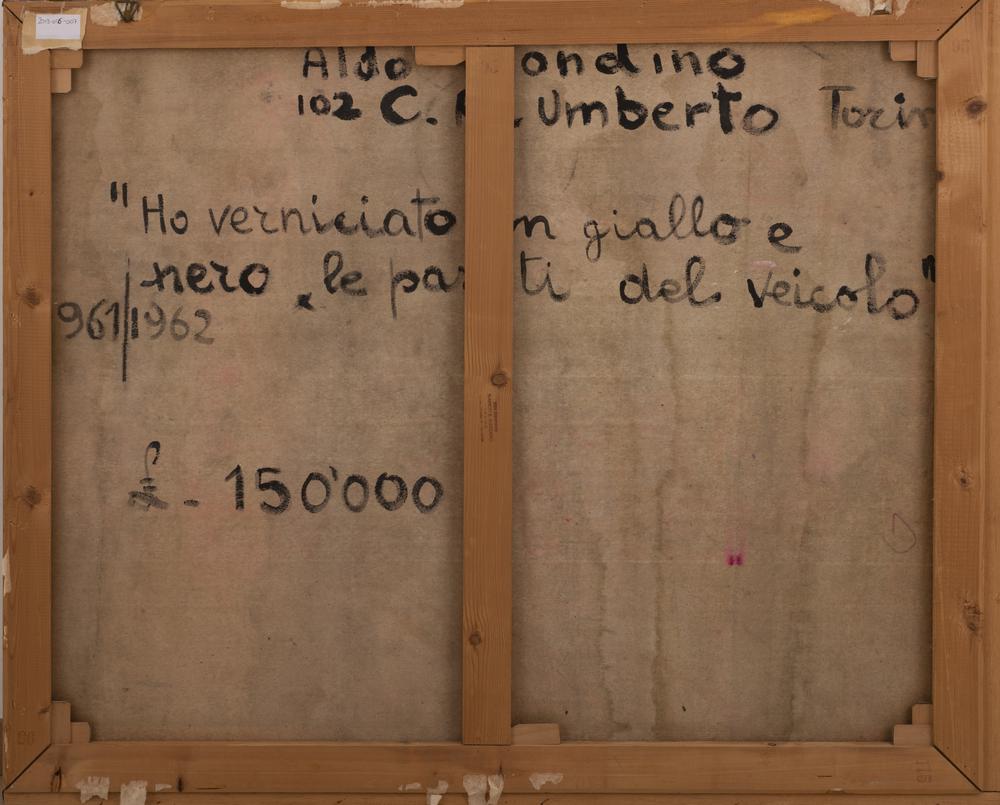 2013-016-007
Aldo ondino
102 C. Umberto Torin
"Ho verniciato n giallo e
nero le par ti del veicolo"
961/1962
£. - 150'000